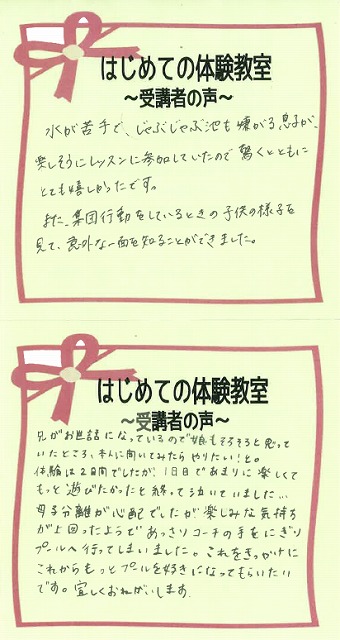 はじめての体験教室
～受講者の声～
水が苦手で、じゃぶじゃぶ池も嫌がる息子が、
楽しそうにレッスンに参加していたので驚くとともに
とても嬉しかったです。
また、集団行動をしているときの子供の様子を
見て、意外な一面を知ることができました。
はじめての体験教室
～受講者の声～
兄がお世話になっているので娘もそろそろと思って
いたところ、本人に聞いてみたらやりたい！と。
体験は2日間でしたが、1日目であまりに楽しくて
もっと遊びたかったと終って泣いていました…
母子分離が心配でしたが楽しみな気持ち
が上回ったようであっさりコーチの手をにぎり
プールへ行ってしまいました。これをきっかけに
これからもっとプールを好きになってもらいたい
です。宜しくおねがいします。